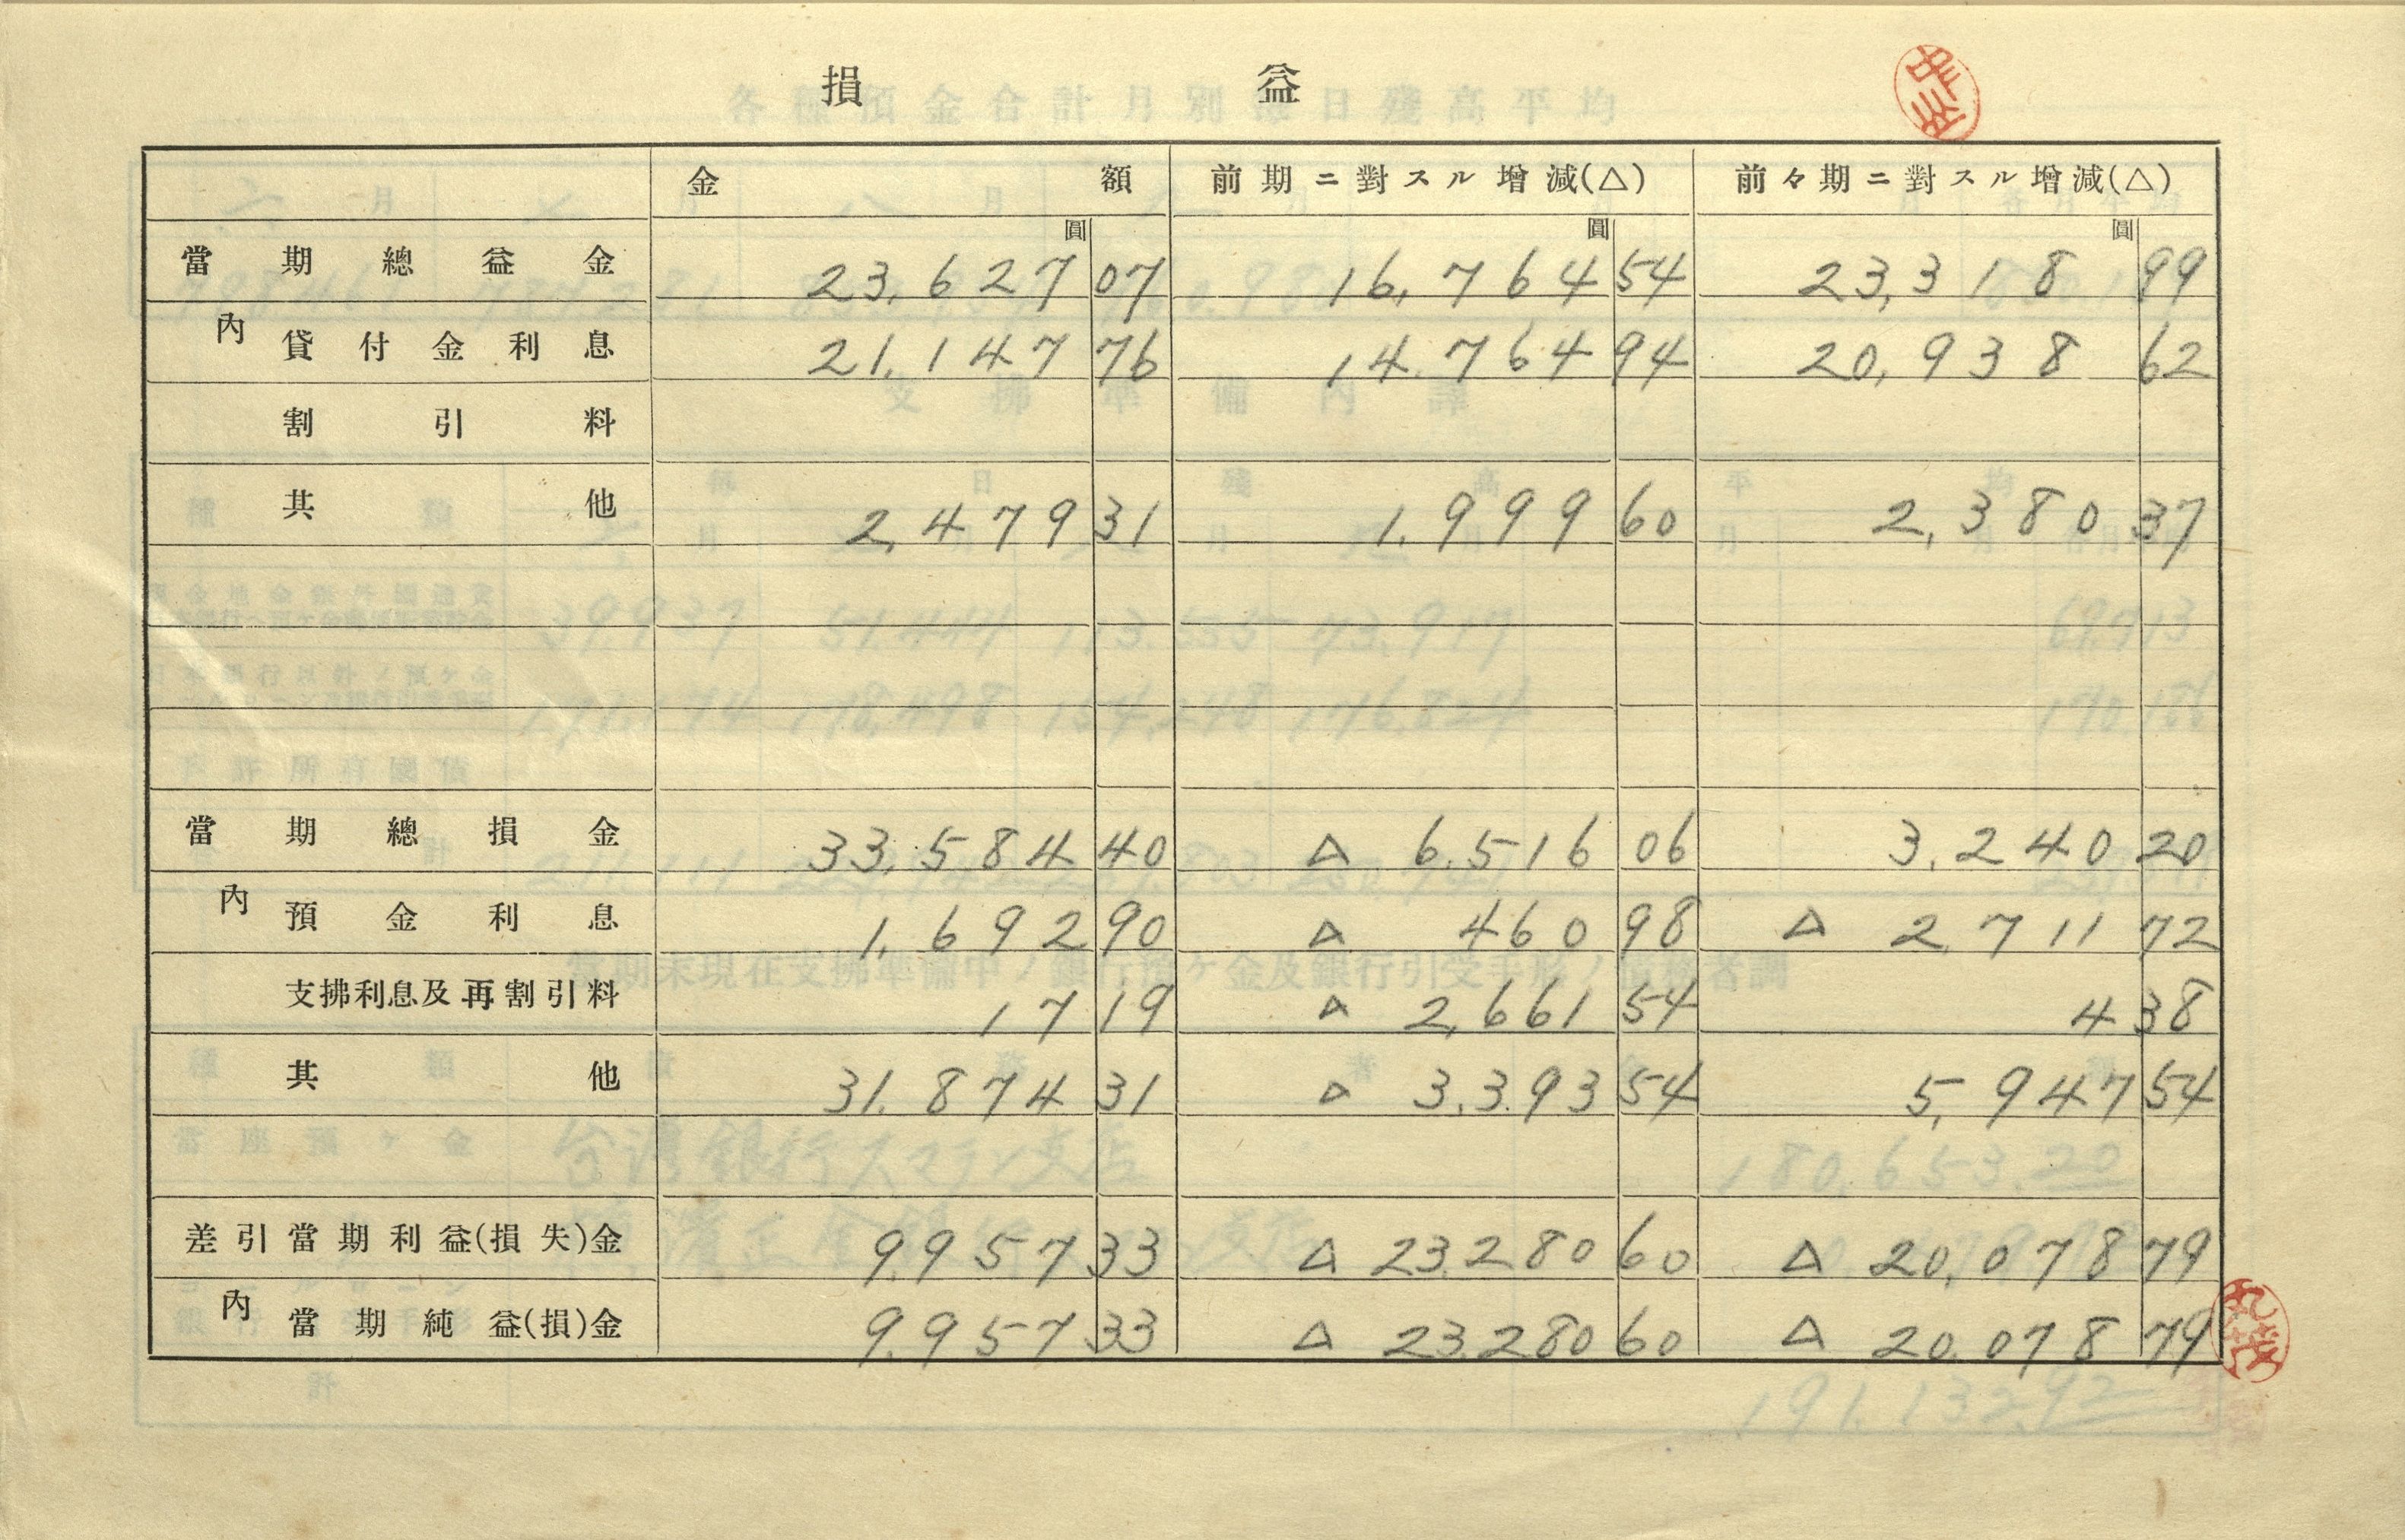 損益
金額 前期ニ對スル增減(△) 前々期ニ對スル增減(△)
圓 圓 圓
當期總益金 23,627 07 16,764 54 23,318 99
內 貸付金利息 21,147 76 14,764 94 20,938 62
割引料
其他 2,479 31 1,999 60 2,380 37
當期總損金 33,584 40 △ 6,516 06 3,240 20
內 預金利息 1,692 90 △ 460 98 △ 2,711 72
支拂利息及再割引料 17 19 △ 2,661 54 4 38
其他 31,874 31 △ 3,393 54 5,947 54
差引當期利益(損失)金 9,957 33 △ 23,280 60 △ 20,078 79
內 當期純益(損)金 9,957 33 △ 23,280 60 △ 20,078 79